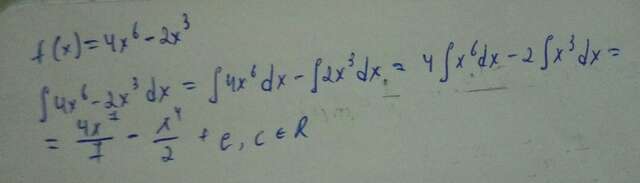 f(x)=4x⁶-2x³
∫4x⁶-2x³dx = ∫4x⁶dx-∫2x³dx = 4∫x⁶dx-2∫x³dx =
= 4x⁷/7 - x⁴/2 + c, c ∈ R